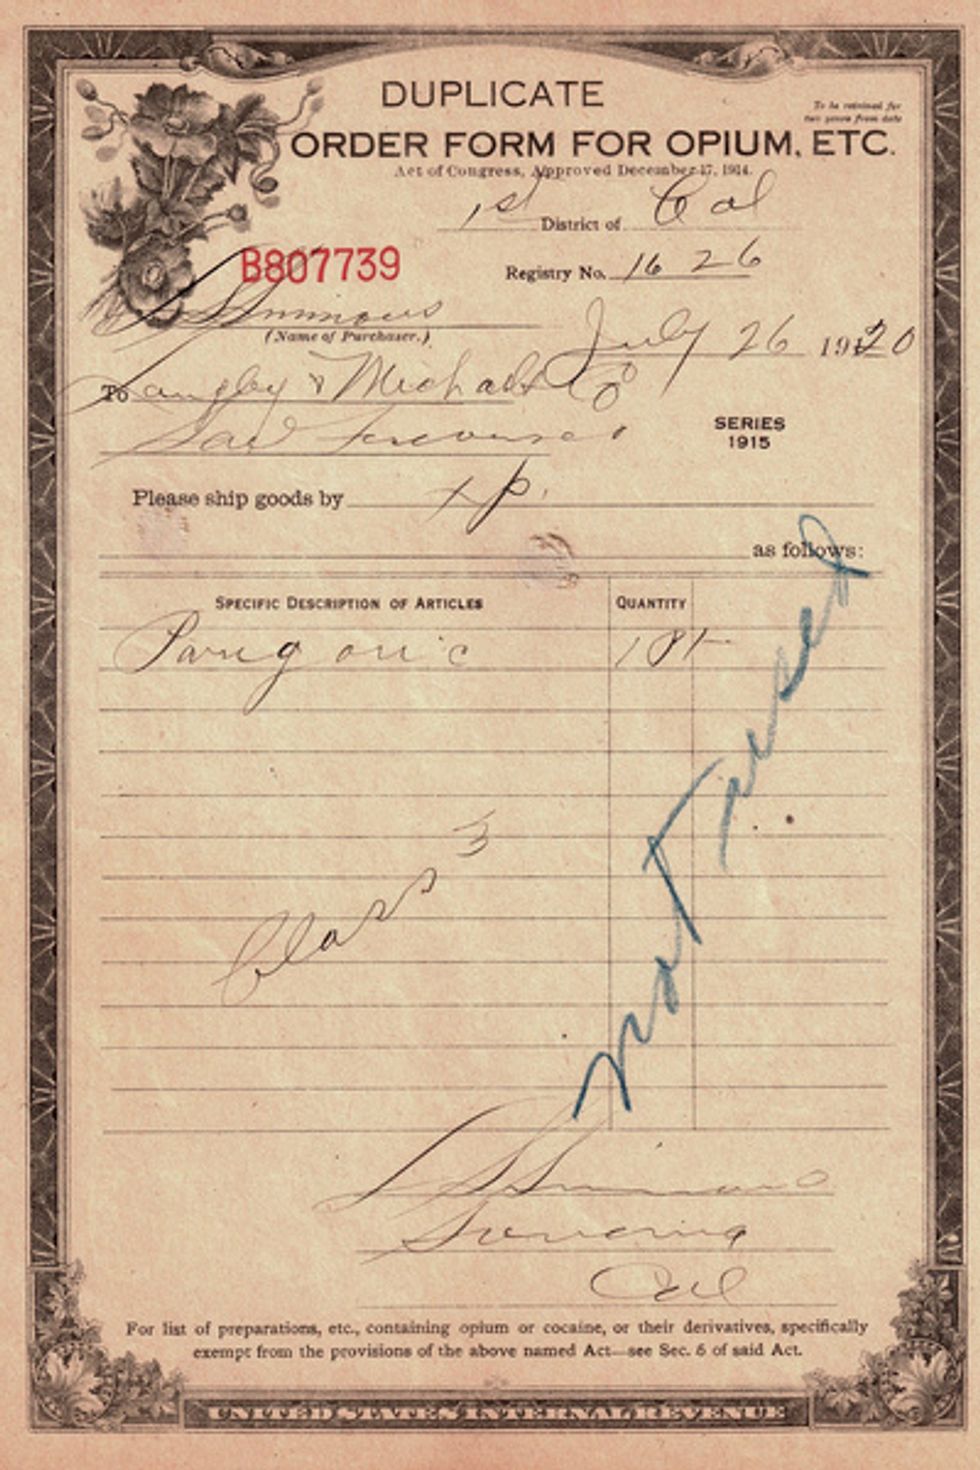 DUPLICATE
To be retained for
two years from date
ORDER FORM FOR OPIUM, ETC.
Act of Congress, Approved December 17, 1914.
1st District of Cal
B807739
Registry No. 1626
Simmons
(Name of Purchaser.)
July 26 1920
To Langley & Michaels Co
San Francisco
SERIES
1915
Please ship goods by xp.
as follows:
SPECIFIC DESCRIPTION OF ARTICLES QUANTITY
Paregoric 1 Pt
Class 3
not
Simmons
Cal
For list of preparations, etc., containing opium or cocaine, or their derivatives, specifically
exempt from the provisions of the above named Act—see Sec. 6 of said Act.
UNITED STATES INTERNAL REVENUE